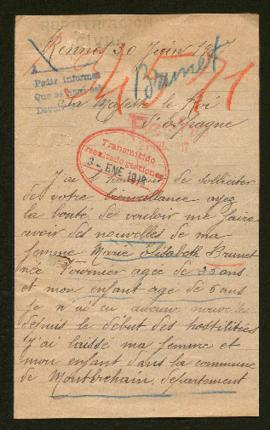 Rennes 30 Juin
Brunet
Pedir informes
Sa Majesté le Roi
d'Espagne
Transmitido
resultado gestiones
3 - ENE 1918
J'ai l'honneur de solliciter
de votre bienveillance ayez
la bonté de vouloir me faire
avoir des nouvelles de ma
femme Marie Elisabeth Brunet
née Fournier agée de 33 ans
et mon enfant age de 5 ans
je n'ai eu aucune nouvelle
depuis le début des hostilitées
J'ai laissé ma femme et
mon enfant dans la commune
de Montbrehain, département